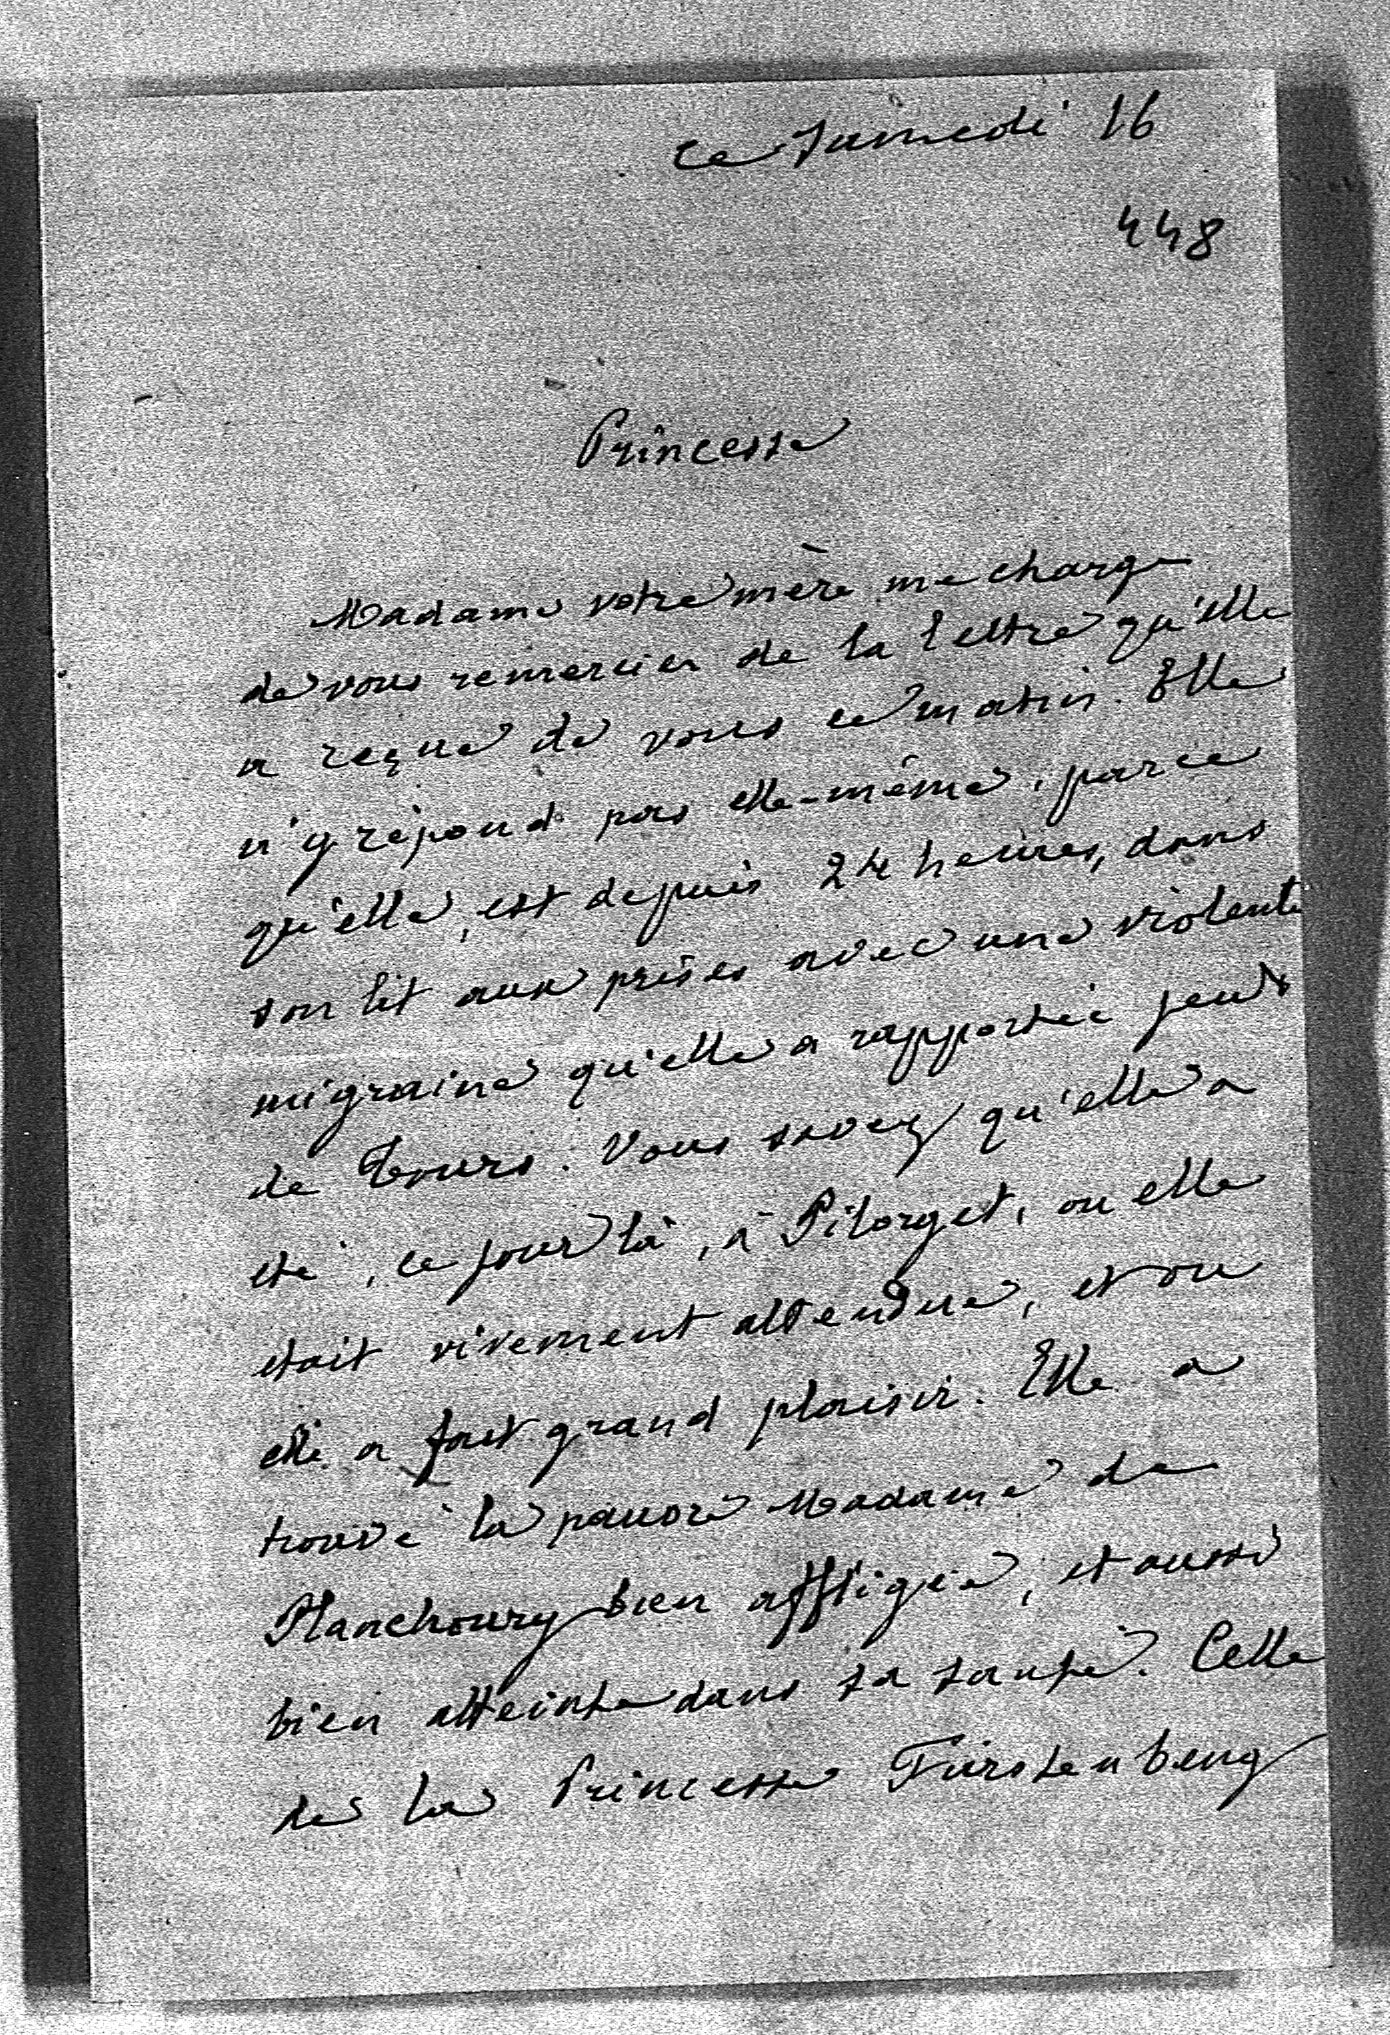 ce Samedi 16
448
Princesse
Madame votre mère me charge
de vous remercier de la lettre qu'elle
a reçue de vous ce matin. Elle
n'y répond pas elle-même, parce
qu'elle est depuis 24 heures, dans
son lit aux prises avec une violente
migraine qu'elle a rapportée jeudi
de Tours. Vous savez qu'elle a
été, ce jour là, à Pilorget, ou elle
etait vivement attendue, et ou
elle a fait grand plaisir. Elle a
trouvé la pauvre Madame de
Planchoury bien affligée, et aussi
bien atteinte dans sa santé. Celle
de la Princesse Fürstenberg